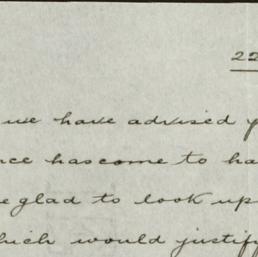 22
we have advised y
nce has come to ha
e glad to look up
hich would justify